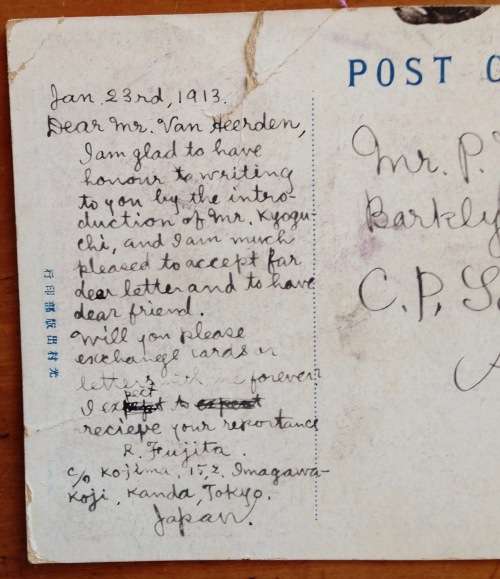 Jan. 23rd, 1913.
Dear Mr. Van Heerden,
I am glad to have
honour to writing
to you by the intro-
duction of Mr. Kyogu-
chi, and I am much
pleased to accept far
dear letter and to have
dear friend.
Will you please
exchange cards
letters with me forever?
I expect to
recieve your reportance
R. Fujita.
c/o Kojima, 15, 2. Imagawa-
Koji, Kanda, Tokyo.
Japan.
光村出版部印行
POST C
Mr. P.
Barkly
C.P. S